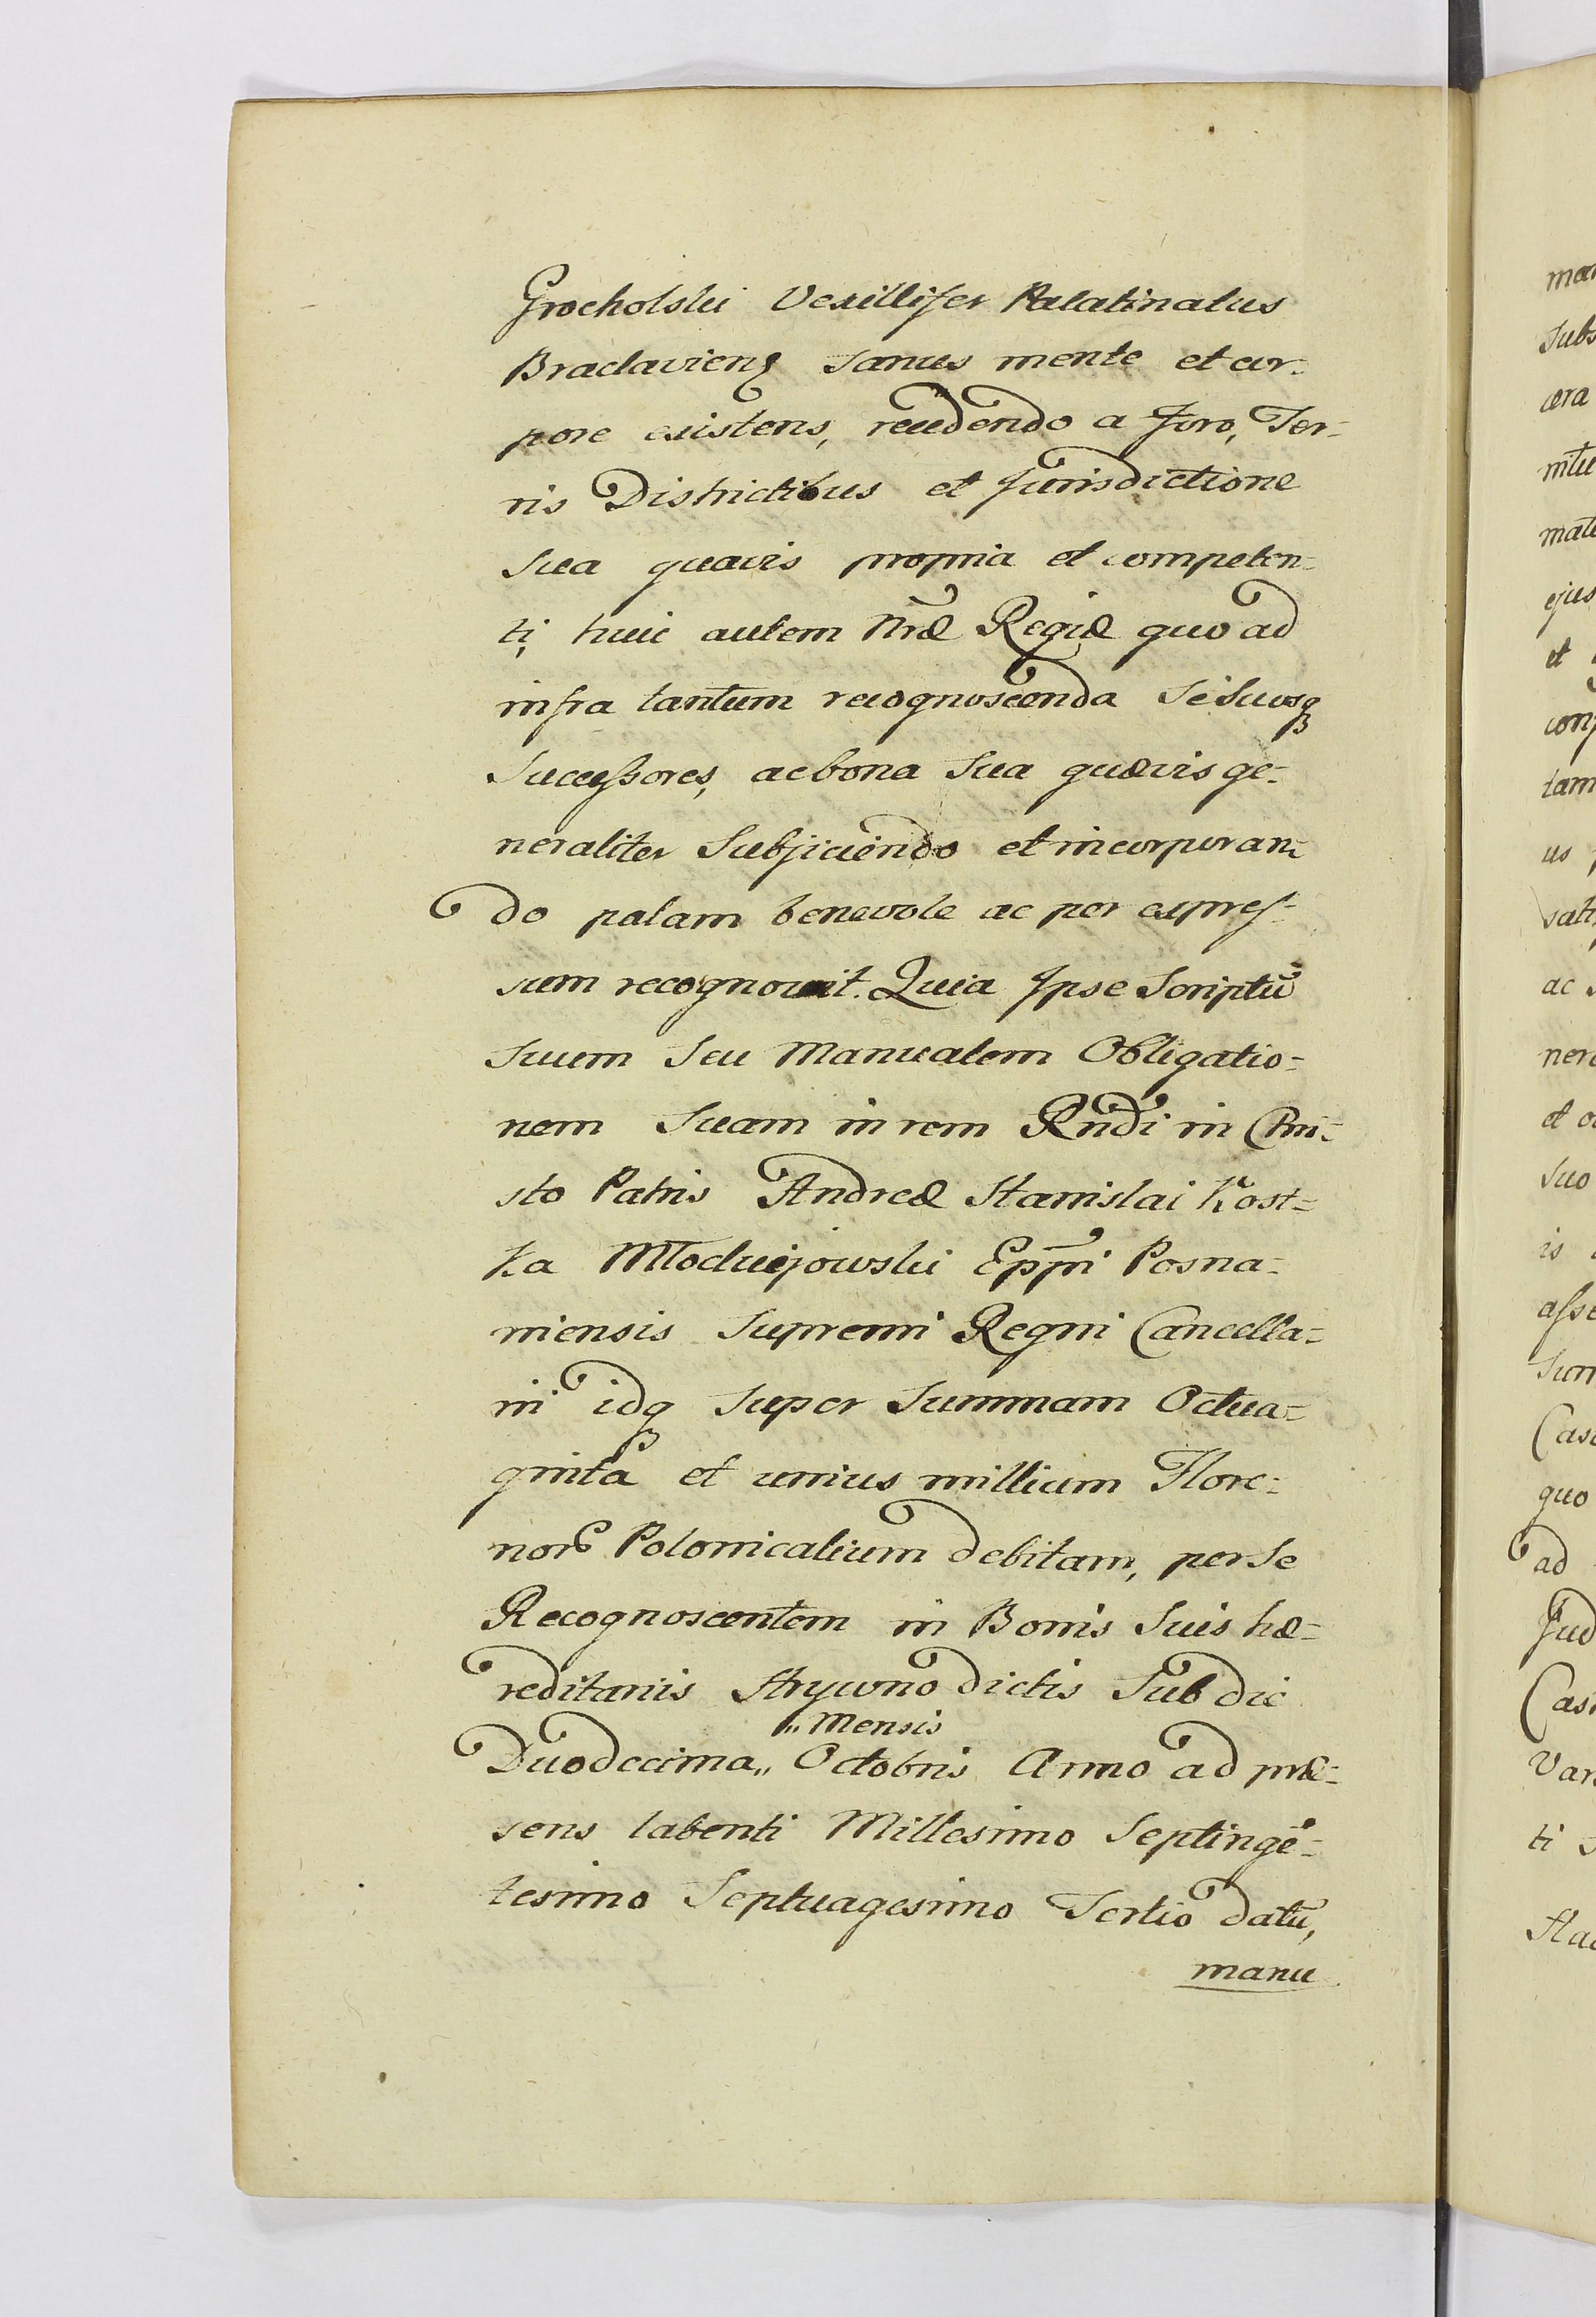 Grocholski Vexillifer Palatinatus
Braclaviens sanus mente et cor-
pore existens, recedendo a Foro, Ter-
ris Districtibus et Jurisdictione
sua quavis propria et competen-
ti, huic autem Nræ Regiæ quo ad
infra tantum recognoscenda Se Suosq
Successores, ac bona Sua quævis ge-
neraliter Subjiciendo et incorporan-
do palam benevole ac per expres-
sum recognovit. Quia Ipse Scriptū
Suum Seu Manualem Obligatio-
nem Suam in rem Rndi in Chri-
sto Patris Andreæ Stanislai Kost-
ka Młodziejowski Eppi Posna-
niensis Supremi Regni Cancella-
rii idq Super Summam Octua-
ginta et unius millium Flore-
nor Polonicalium debitam, per Se
Recognoscentem in Bonis Suis hæ-
reditariis Strywno dictis Sub die
„ Mensis
Duodecima „ Octobris Anno ad præ-
sens labenti Millesimo Septingē-
tesimo Septuagesimo Tertio datū,
manu
mar
Subs
cera
mtu
mate
ejus
et
comp
tam
us
satis
ac
nera
et
Suo
is
asse
Sum
Cas
quo
ad
Jud
Cas
Var
ti